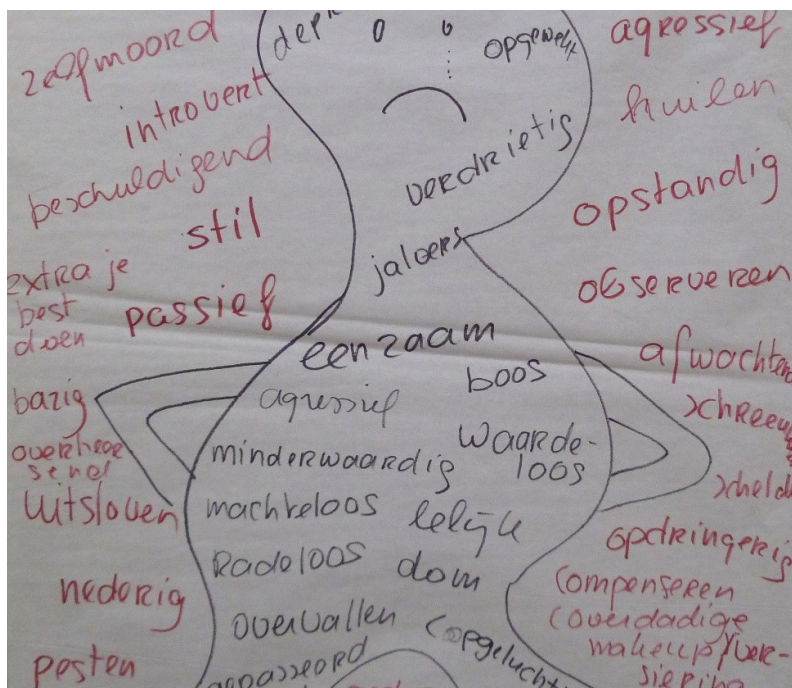 zelfmoord
introvert
beschuldigend
stil
extra je
best
doen
passief
bazig
overheer
send
uitsloven
nederig
pesten
opgewekt
verdrietig
jaloers
eenzaam
boos
agressief
waarde-
loos
minderwaardig
machteloos lelijk
Radeloos dom
overvallen
(opgelucht
gepasseerd
agressief
huilen
opstandig
observeren
opdringerig
compenseren
(overdadige
makeup/ver-
siering